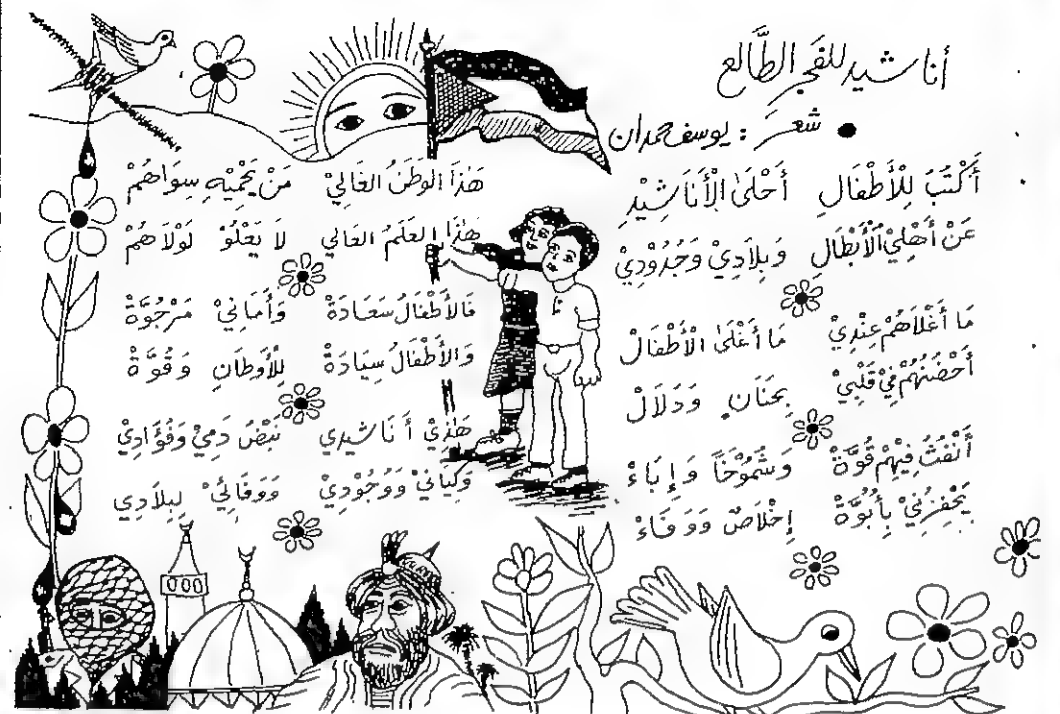 أناشيد للفجر الطَّالع
● شعر : يوسف حمدان
أَكْتُبُ لِلْأَطْفَالِ أَحْلَىٰ الْأَنَاشِيْدِ
عَنْ أَهْلِيْ الْأَبْطَالِ وَبِلَادِيْ وَجُدُوْدِيْ
مَا أَغْلَاهُمْ عِنْدِيْ مَا أَغْلَىٰ الْأَطْفَالْ
أَحْضُنُهُمْ فِيْ قَلْبِيْ بِحَنَانٍ وَدَلَالْ
أَنْفُثُ فِيْهِمْ قُوَّةْ وَشُمُوْخَاً وَإِبَاءْ
يَحْفِزُنِيْ بِأُبُوَّةْ إِخْلَاصٌ وَوَفَاءْ
هَذَا الوَطَنُ الغَالِيْ مَنْ يَحْمِيْهِ سِوَاهُمْ
هَذَا العَلَمُ العَالِي لَا يَعْلُوْ لَوْلَاهُمْ
فَالأَطْفَالُ سَعَادَةْ وَأَمَانِيْ مَرْجُوَّةْ
وَالأَطْفَالُ سِيَادَةْ لِلْأَوطَانِ وَقُوَّةْ
هَذْيْ أَنَاشيدِي نَبْضُ دَمِيْ وَفُؤَادِيْ
وَكِيَانِيْ وَوُجُوْدِيْ وَوَفَائِيْ لِبِلَادِي